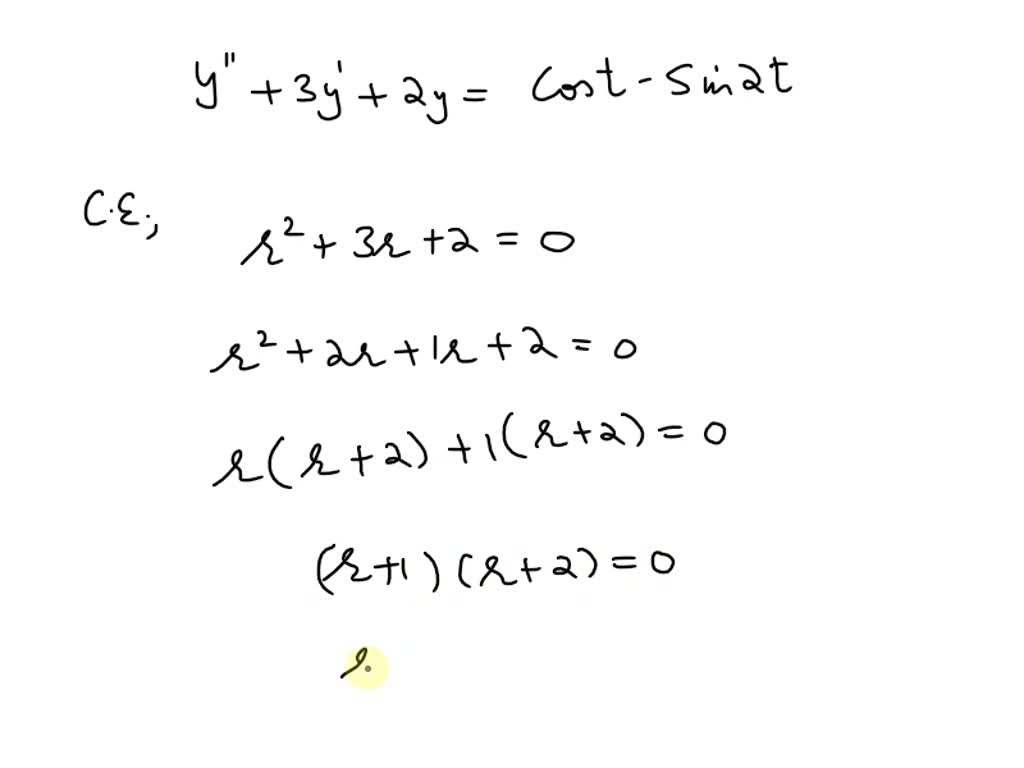 y'' + 3y' + 2y = Cost - Sin2t
C.E.,
r² + 3r + 2 = 0
r² + 2r + 1r + 2 = 0
r(r+2) + 1(r+2) = 0
(r+1)(r+2) = 0
r